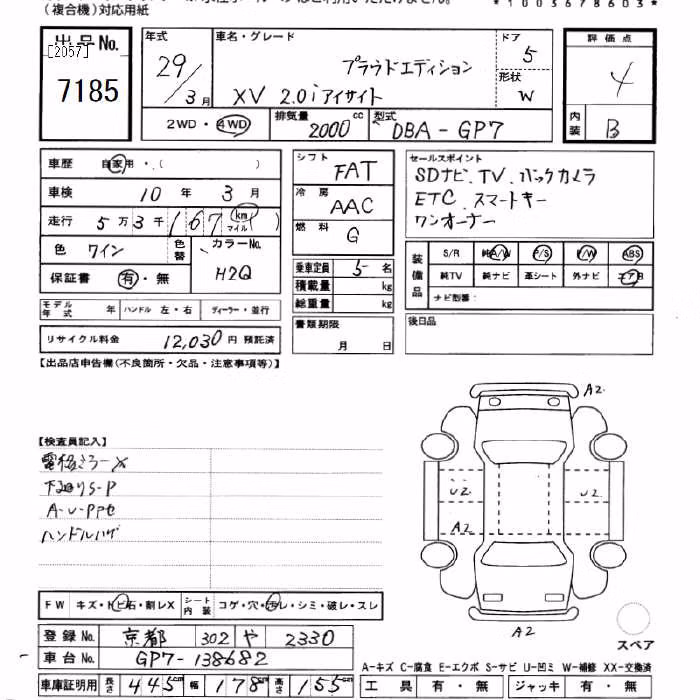 (複合機)対応用紙
*1003678603*
出品No.
[2057]
7185
年式
29/3月
車名・グレード
プラウドエディション
XV 2.0i アイサイト
ドア
5
形状
W
評価点
4
内装
B
2WD・4WD
排気量
2000cc
型式
DBA-GP7
車歴 自家用・( )
車検 10年 3月
走行 5万3千167 km マイル ( )
色 ワイン 色替
カラーNo.
H2Q
保証書 有・無
モデル年式 年 ハンドル 左・右 ディーラー・並行
リサイクル料金 12,030円 預託済
シフト FAT
冷房 AAC
燃料 G
乗車定員 5名
積載量 kg
総重量 kg
書類期限
月 日
セールスポイント
SDナビ、TV、バックカメラ
ETC、スマートキー
ワンオーナー
装備品
S/R 純A/W P/S P/W ABS
純TV 純ナビ 革シート 外ナビ エアB
ナビ型番:
後日品
【出品店申告欄(不良箇所・欠品・注意事項等)】
【検査員記入】
電格ミラーX
下廻りS-P
A-U-PPセ
ハンドルハゲ
A2
U2
U2
A2
A2
スペア
FW キズ・トビ石・割レX
シート内装 コゲ・穴・汚レ・シミ・破レ・スレ
登録No. 京都 302 や 2330
車台No. GP7-138682
車庫証明用 長さ 445cm 幅 178cm 高さ 155cm
A-キズ C-腐食 E-エクボ S-サビ U-凹ミ W-補修 XX-交換済
工具 有・無 ジャッキ 有・無